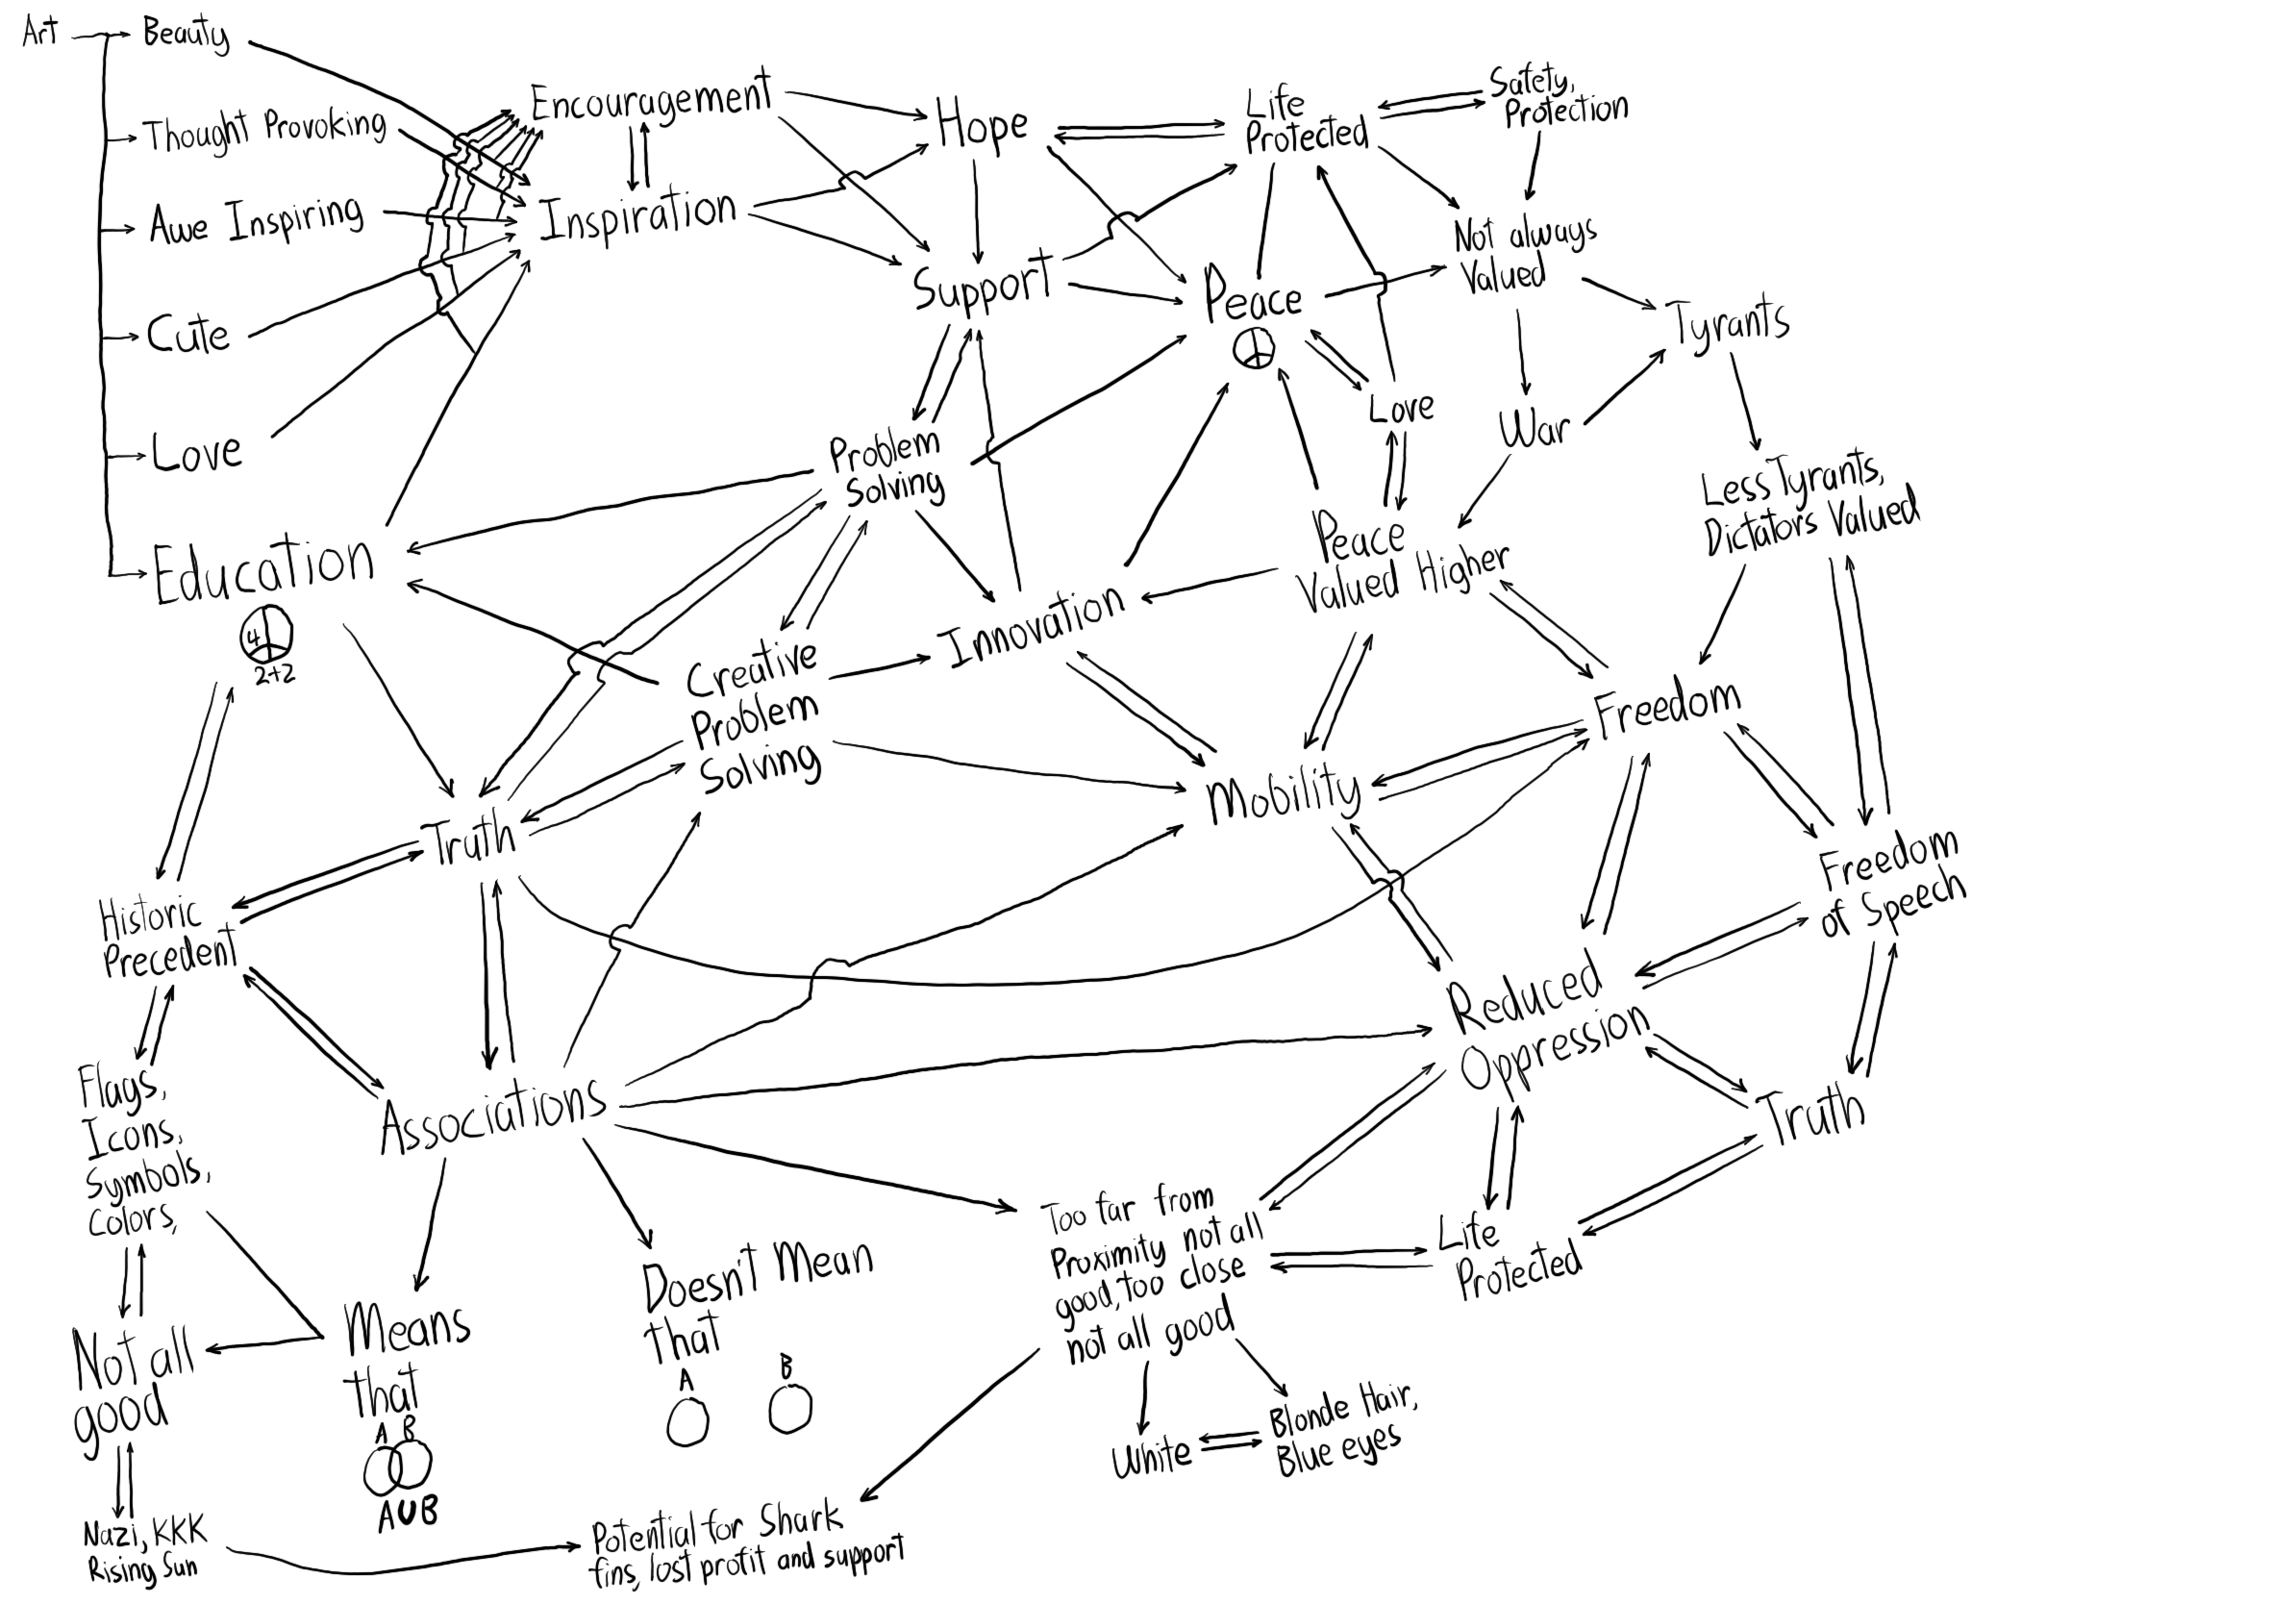 Art
Beauty
Thought Provoking
Awe Inspiring
Cute
Love
Education
4
2+2
Encouragement
Inspiration
Hope
Support
Life
Protected
Safety,
Protection
Not always
Valued
Peace
Tyrants
Love
War
Less Tyrants,
Dictators Valued
Problem
Solving
Peace
Valued Higher
Innovation
Creative
Problem
Solving
Freedom
Mobility
Truth
Freedom
of Speech
Historic
Precedent
Reduced
Oppression
Flags,
Icons,
Symbols,
Colors,
Associations
Truth
Too far from
Proximity not all
good, too close
not all good
Life
Protected
Doesn't Mean
that
A B
Means
that
A B
AUB
Not all
good
White
Blonde Hair,
Blue eyes
Nazi, KKK
Rising Sun
Potential for Shark
fins, lost profit and support